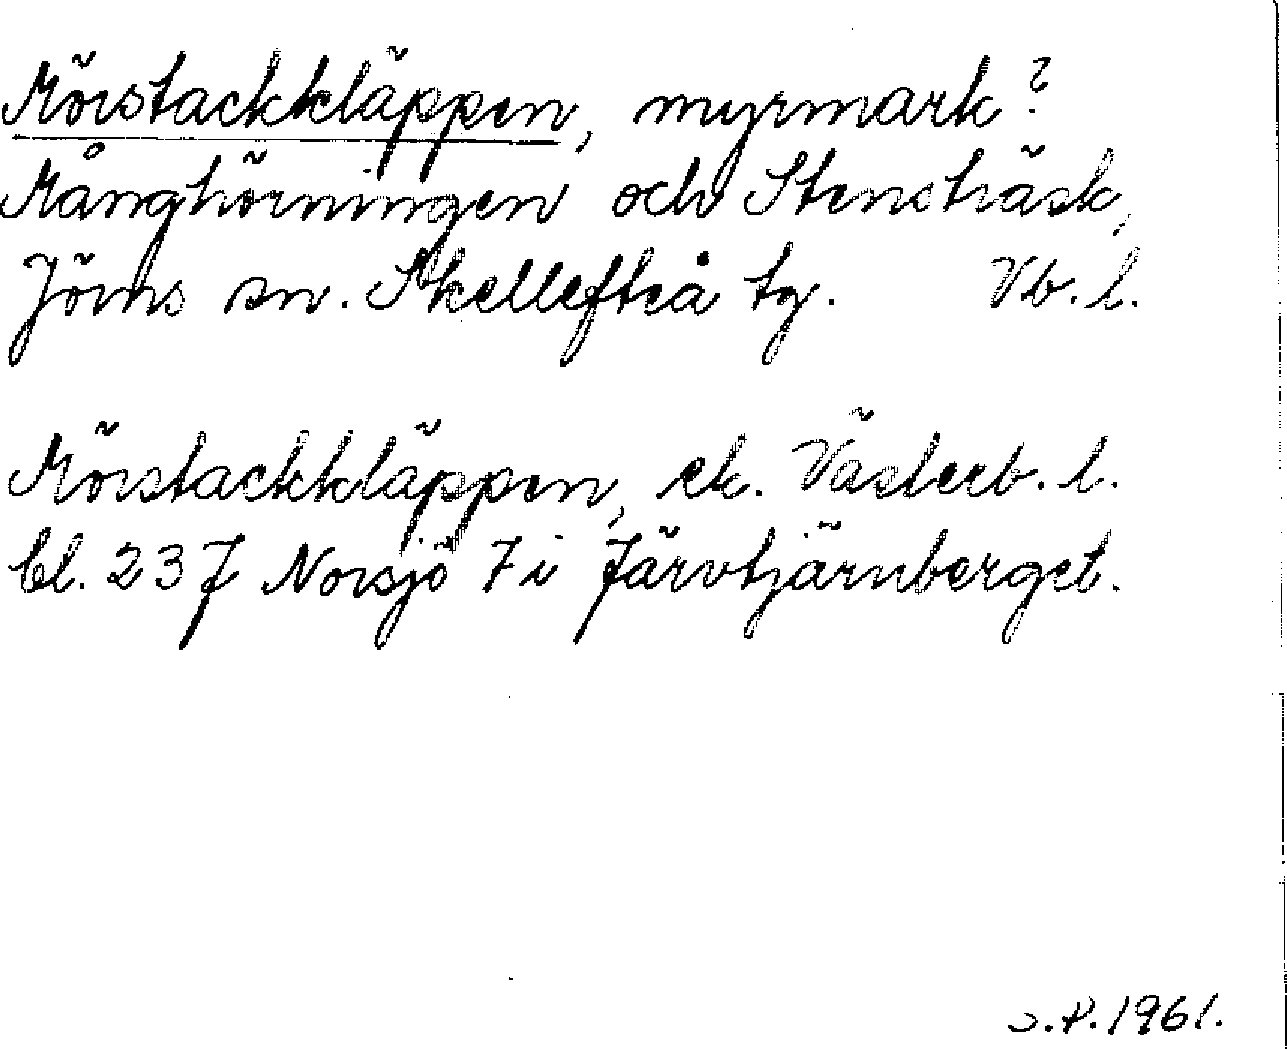 Mörstackkläppen, myrmark?
Månghörningen och Stensträsk,
Jörns sn. Skellefteå tg. Vb. l.
Mörstackkläppen, ek. Västerb. l.
bl. 23 J Norsjö 7 i Järvtjärnberget.
S.P. 1961.